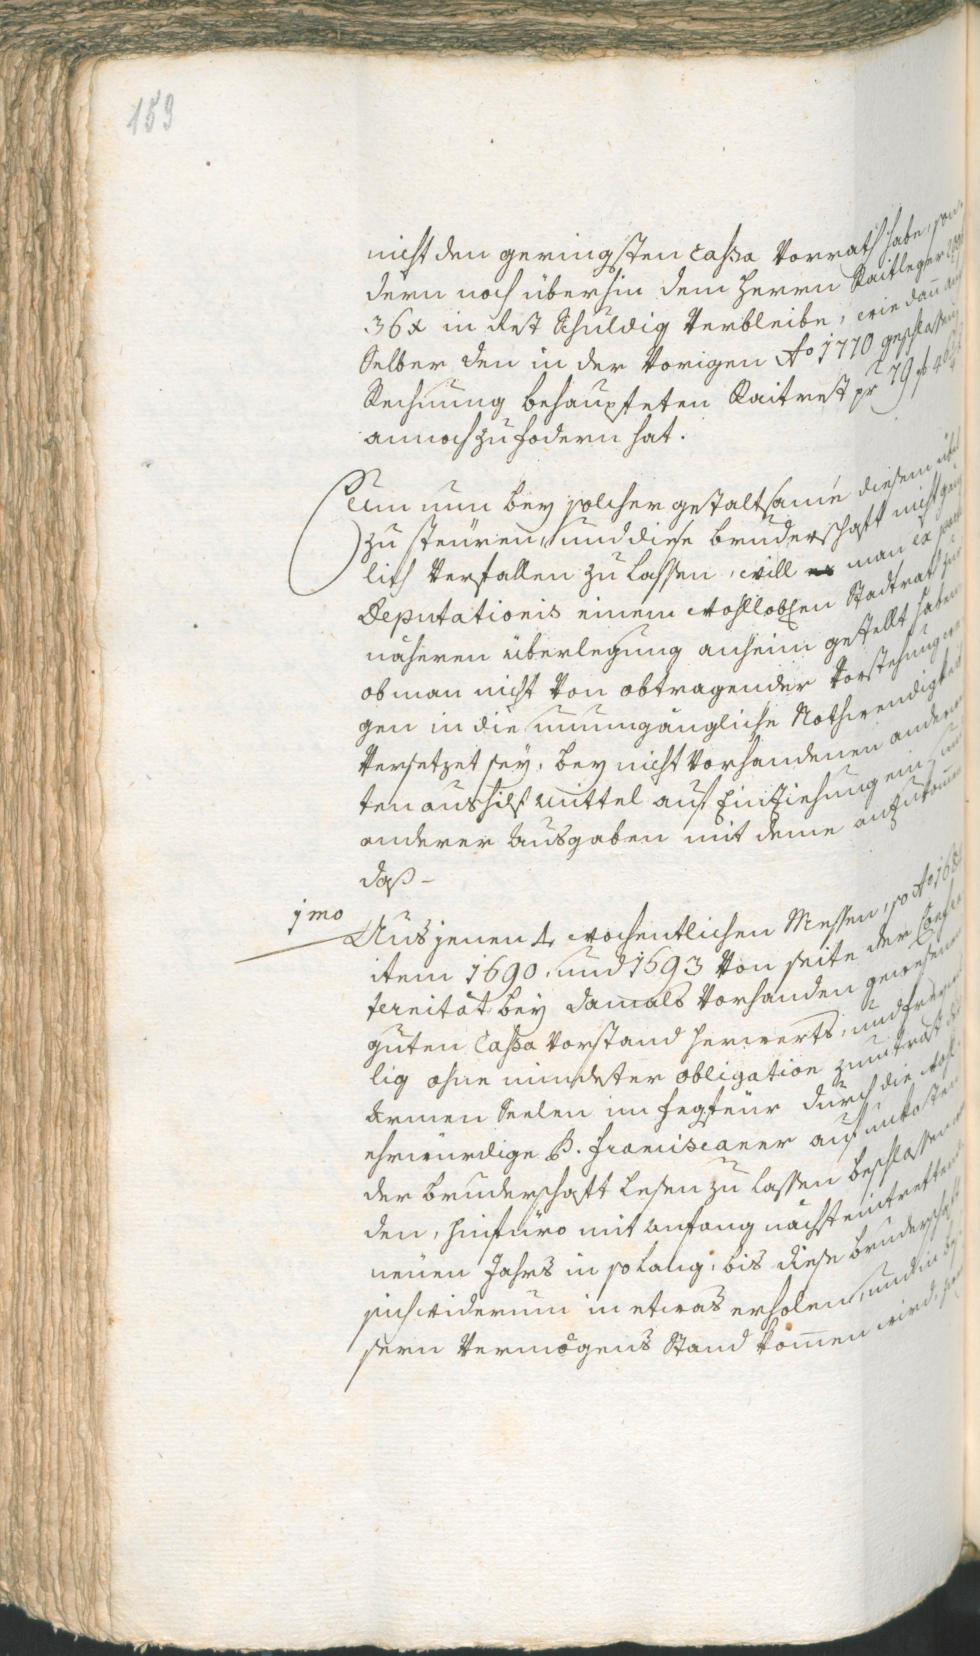 159
nicht den geringsten Cassa Vorrath habe, son-
dern noch überhin dem Herrn Raitleger
36 x in Rest Schuldig Verbleibe, wie dan̄ auch
Selber den in der Vorigen Ao 1770 geschlossen
Rechnung behaupteten Raitrest pr 79 f 46
annoch zu fodern hat.
Um nun bey solcher gestaltsame diesem übl
zu steüren, und diese Bruderschaft nicht gänz
lich Verfallen zu lassen, will man ex parte
Deputationis einem wohlloben Stadtrath zur
näheren Überlegung anheim gestellt haben
ob man nicht Von obtragender Vorstehung we
gen in die unumgängliche Nothwendigkeit
Versetzet sey, bey nicht Vorhandenen ander
ten aushilf Mittel auf Einziehung ein und
anderer Ausgaben mit deme anzukom̄en
daß –
1mo
Aus jenen 4 wochentlichen Messen, so Ao 168
item 1690. und 1693 Von seite der Confra
ternität bey damals Vorhanden gewesenen
guten Cassa Vorstand herwerts, und freywil
lig ohne mindester obligation zum trost der
Armen Seelen im fegfeür durch die Wohl-
ehrwürdige P. Franciscaner auf unkosten
der Bruderschaft Lesen zu lassen beschlossen
den, hinfüro mit anfang nächst eintrettenden
neüen Jahrs in solang, bis diese Bruderschaft
sich widerum in etwas erholen, und in bes
sern Vermögens Stand kom̄en wird,